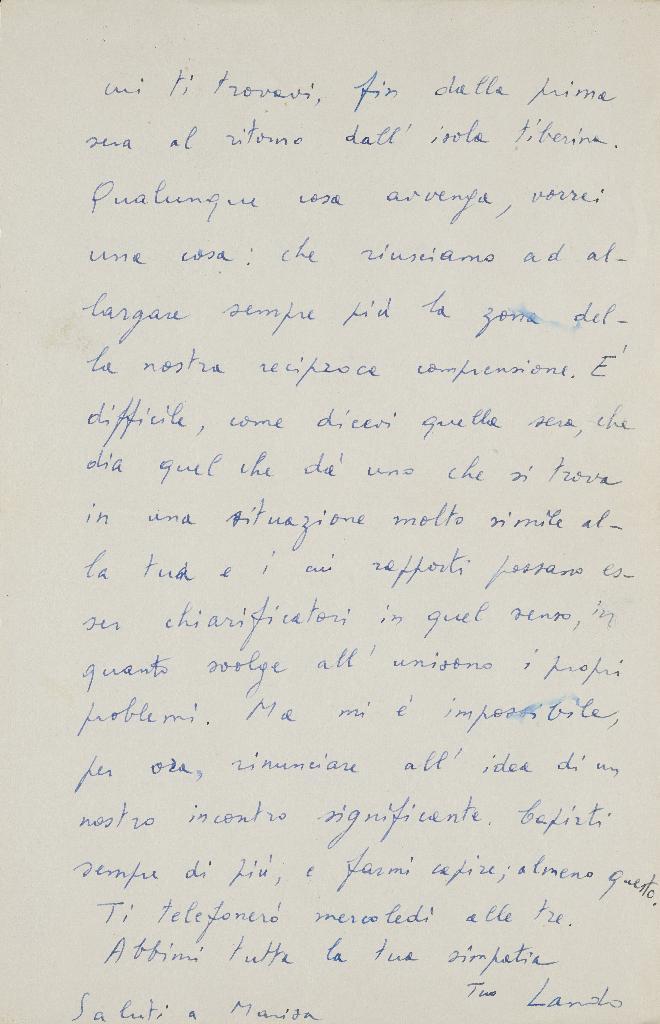 cui ti trovavi, fin dalla prima
sera al ritorno dall' isola tiberina.
Qualunque cosa avvenga, vorrei
una cosa: che riusciamo ad al-
largare sempre più la zona del-
la nostra reciproca comprensione. E'
difficile, come dicevi quella sera, che
dia quel che dà uno che si trova
in una situazione molto simile al-
la tua e i cui rapporti possano es-
ser chiarificatori in quel senso, in
quanto svolge all' unisono i propri
problemi. Ma mi è impossibile,
per ora, rinunciare all' idea di un
nostro incontro significante. Capirti
sempre di più, e farmi capire; almeno questo.
Ti telefonerò mercoledì alle tre.
Abbimi tutta la tua simpatia
Tuo Lando
Saluti a Marisa